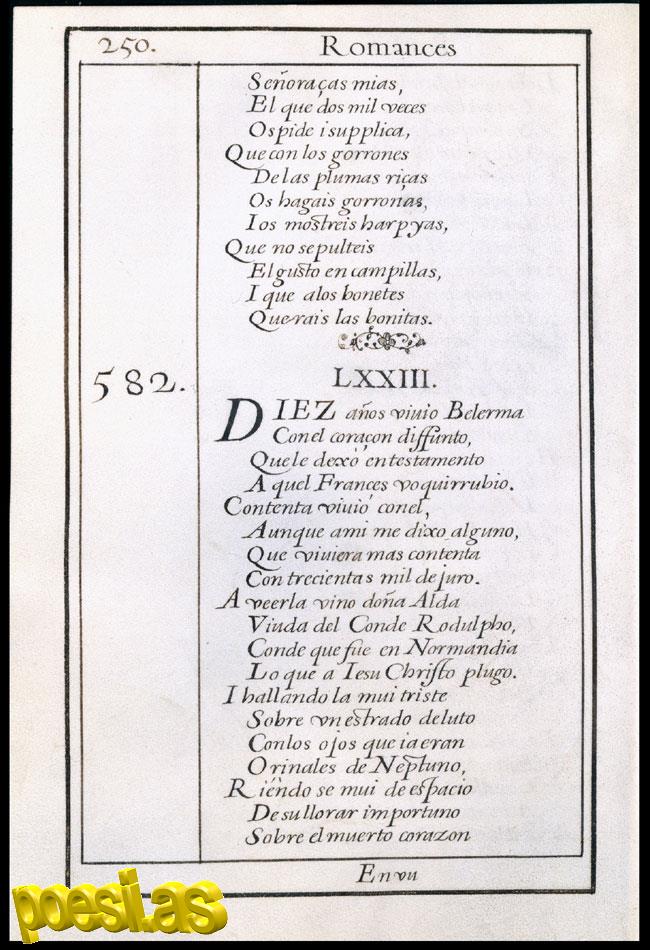 250.
Romances
Señoraças mias,
El que dos mil veces
Os pide i supplica,
Que con los gorrones
De las plumas riças
Os hagais gorronas,
I os mostreis harpyas,
Que no sepulteis
El gusto en campillas,
I que alos bonetes
Querais las bonitas.
582.
LXXIII.
DIEZ años viuio Belerma
Conel coraçon diffunto,
Quele dexò en testamento
A quel Frances voquirrubio.
Contenta viuió conel,
Aunque ami me dixo alguno,
Que viuiera mas contenta
Con trecientas mil de juro.
A veerla vino doña Alda
Viuda del Conde Rodulpho,
Conde que fue en Normandia
Lo que a Iesu Christo plugo.
I hallando la mui triste
Sobre vn estrado de luto
Conlos ojos que ia eran
Orinales de Neptuno,
Riéndo se mui de espacio
De su llorar importuno
Sobre el muerto corazon
Envu
poesi.as